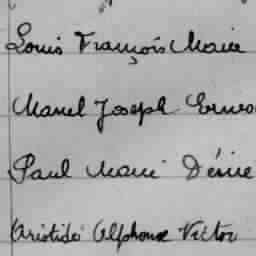 Louis François Marie
Marcel Joseph Ernes
Paul Marie Désiré
Aristide Alphonse Victor